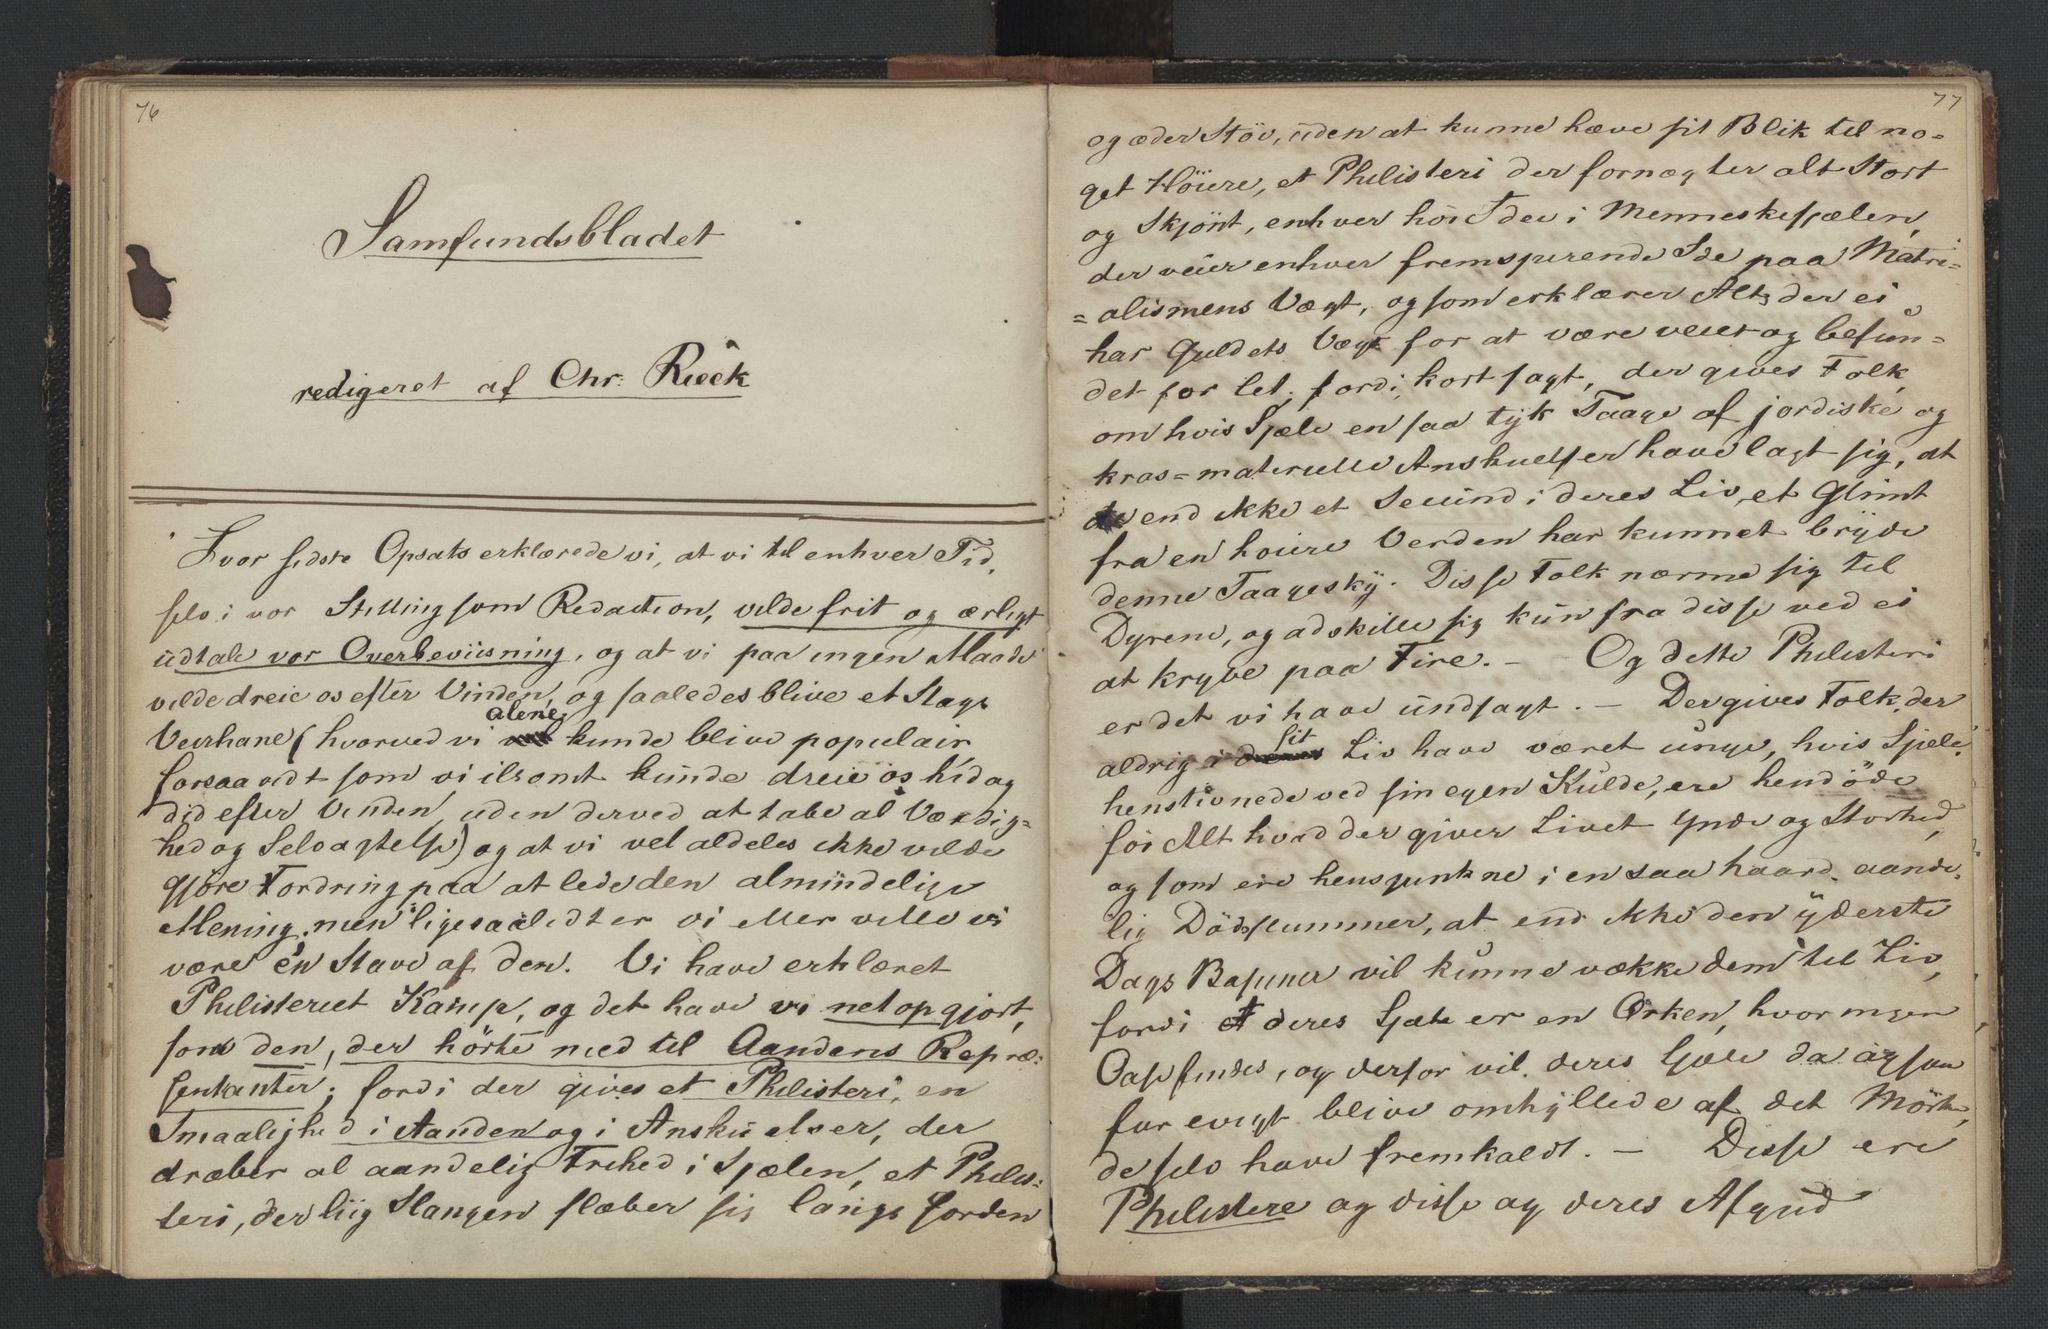 76
Samfundsbladet
redigeret af Chr: Rieck
I vor sidste Opsats erklærede vi, at vi til enhver Tid,
selv i vor Stilling som Redaction, vilde frit og ærligt
udtale vor Overbeviisning, og at vi paa ingen Maade
vilde dreie os efter Vinden, og saaledes blive et Slags
Veirhane (hvorved vi alene kunde blive populair,
forsaavidt som vi ilsomt kunde dreie os hid og
did efter Vinden, uden derved at tabe al Værdig=
hed og Selvagtelse) og at vi vel aldeles ikke vilde
gjöre Fordring paa at lede den almindelige
Mening, men ligesaalidt er vi eller ville vi
være en Slave af den. Vi have erklæret
Philisteriet Kamp, og det have vi netop gjort,
som den, der hörte med til Aandens Repræ=
sentanter; fordi der gives et Philisteri, en
Smaalighed i Aanden og i Anskuelser, der
dræber al aandelig Frihed i Sjælen, et Philis=
teri, der liig Slangen slæber sig langs Jorden
77
og æder Stöv, uden at kunne hæve sit Blik til no=
get Höiere, et Philisteri der fornægter alt Stort
og Skjönt, enhver höi Idee i Menneskesjælen,
der veier enhver fremspirende Ide paa Matri=
=alismens Vægt, og som erklærer Alt, der ei
har Guldets Vægt for at være veiet og befun=
det for let; fordi, kort sagt, der gives Folk,
om hvis Sjæle en saa tyk Taage af jordiske og
kras=materielle Anskuelser have lagt sig, at
end ikke et Secund i deres Liv, et Glimt
fra en höiere Verden har kunnet bryde
denne Taagesky. Disse Folk nærme sig til
Dyrene, og adskille sig kun fra disse ved ei
at krybe paa Fire. — Og dette Philisteri
er det vi have undsagt. — Der gives Folk, der
aldrig i sit Liv have været unge, hvis Sjæle,
henstivnede ved sin egen Kulde, ere hendöde
för Alt hvad der giver Livet Ynde og Storhed,
og som ere hensjunkne i en saa haard, aande=
lig Dödsslummer, at end ikke den yderste
Dags Basuner vil kunne vække dem til Liv,
fordi deres Sjæle er en Örken, hvor ingen
Oase findes, og derfor vil deres Sjæle da ogsaa
for evigt blive omhyllede af det Mörke,
de selv have fremkaldt. — Disse ere
Philistere og disse og deres Afgud